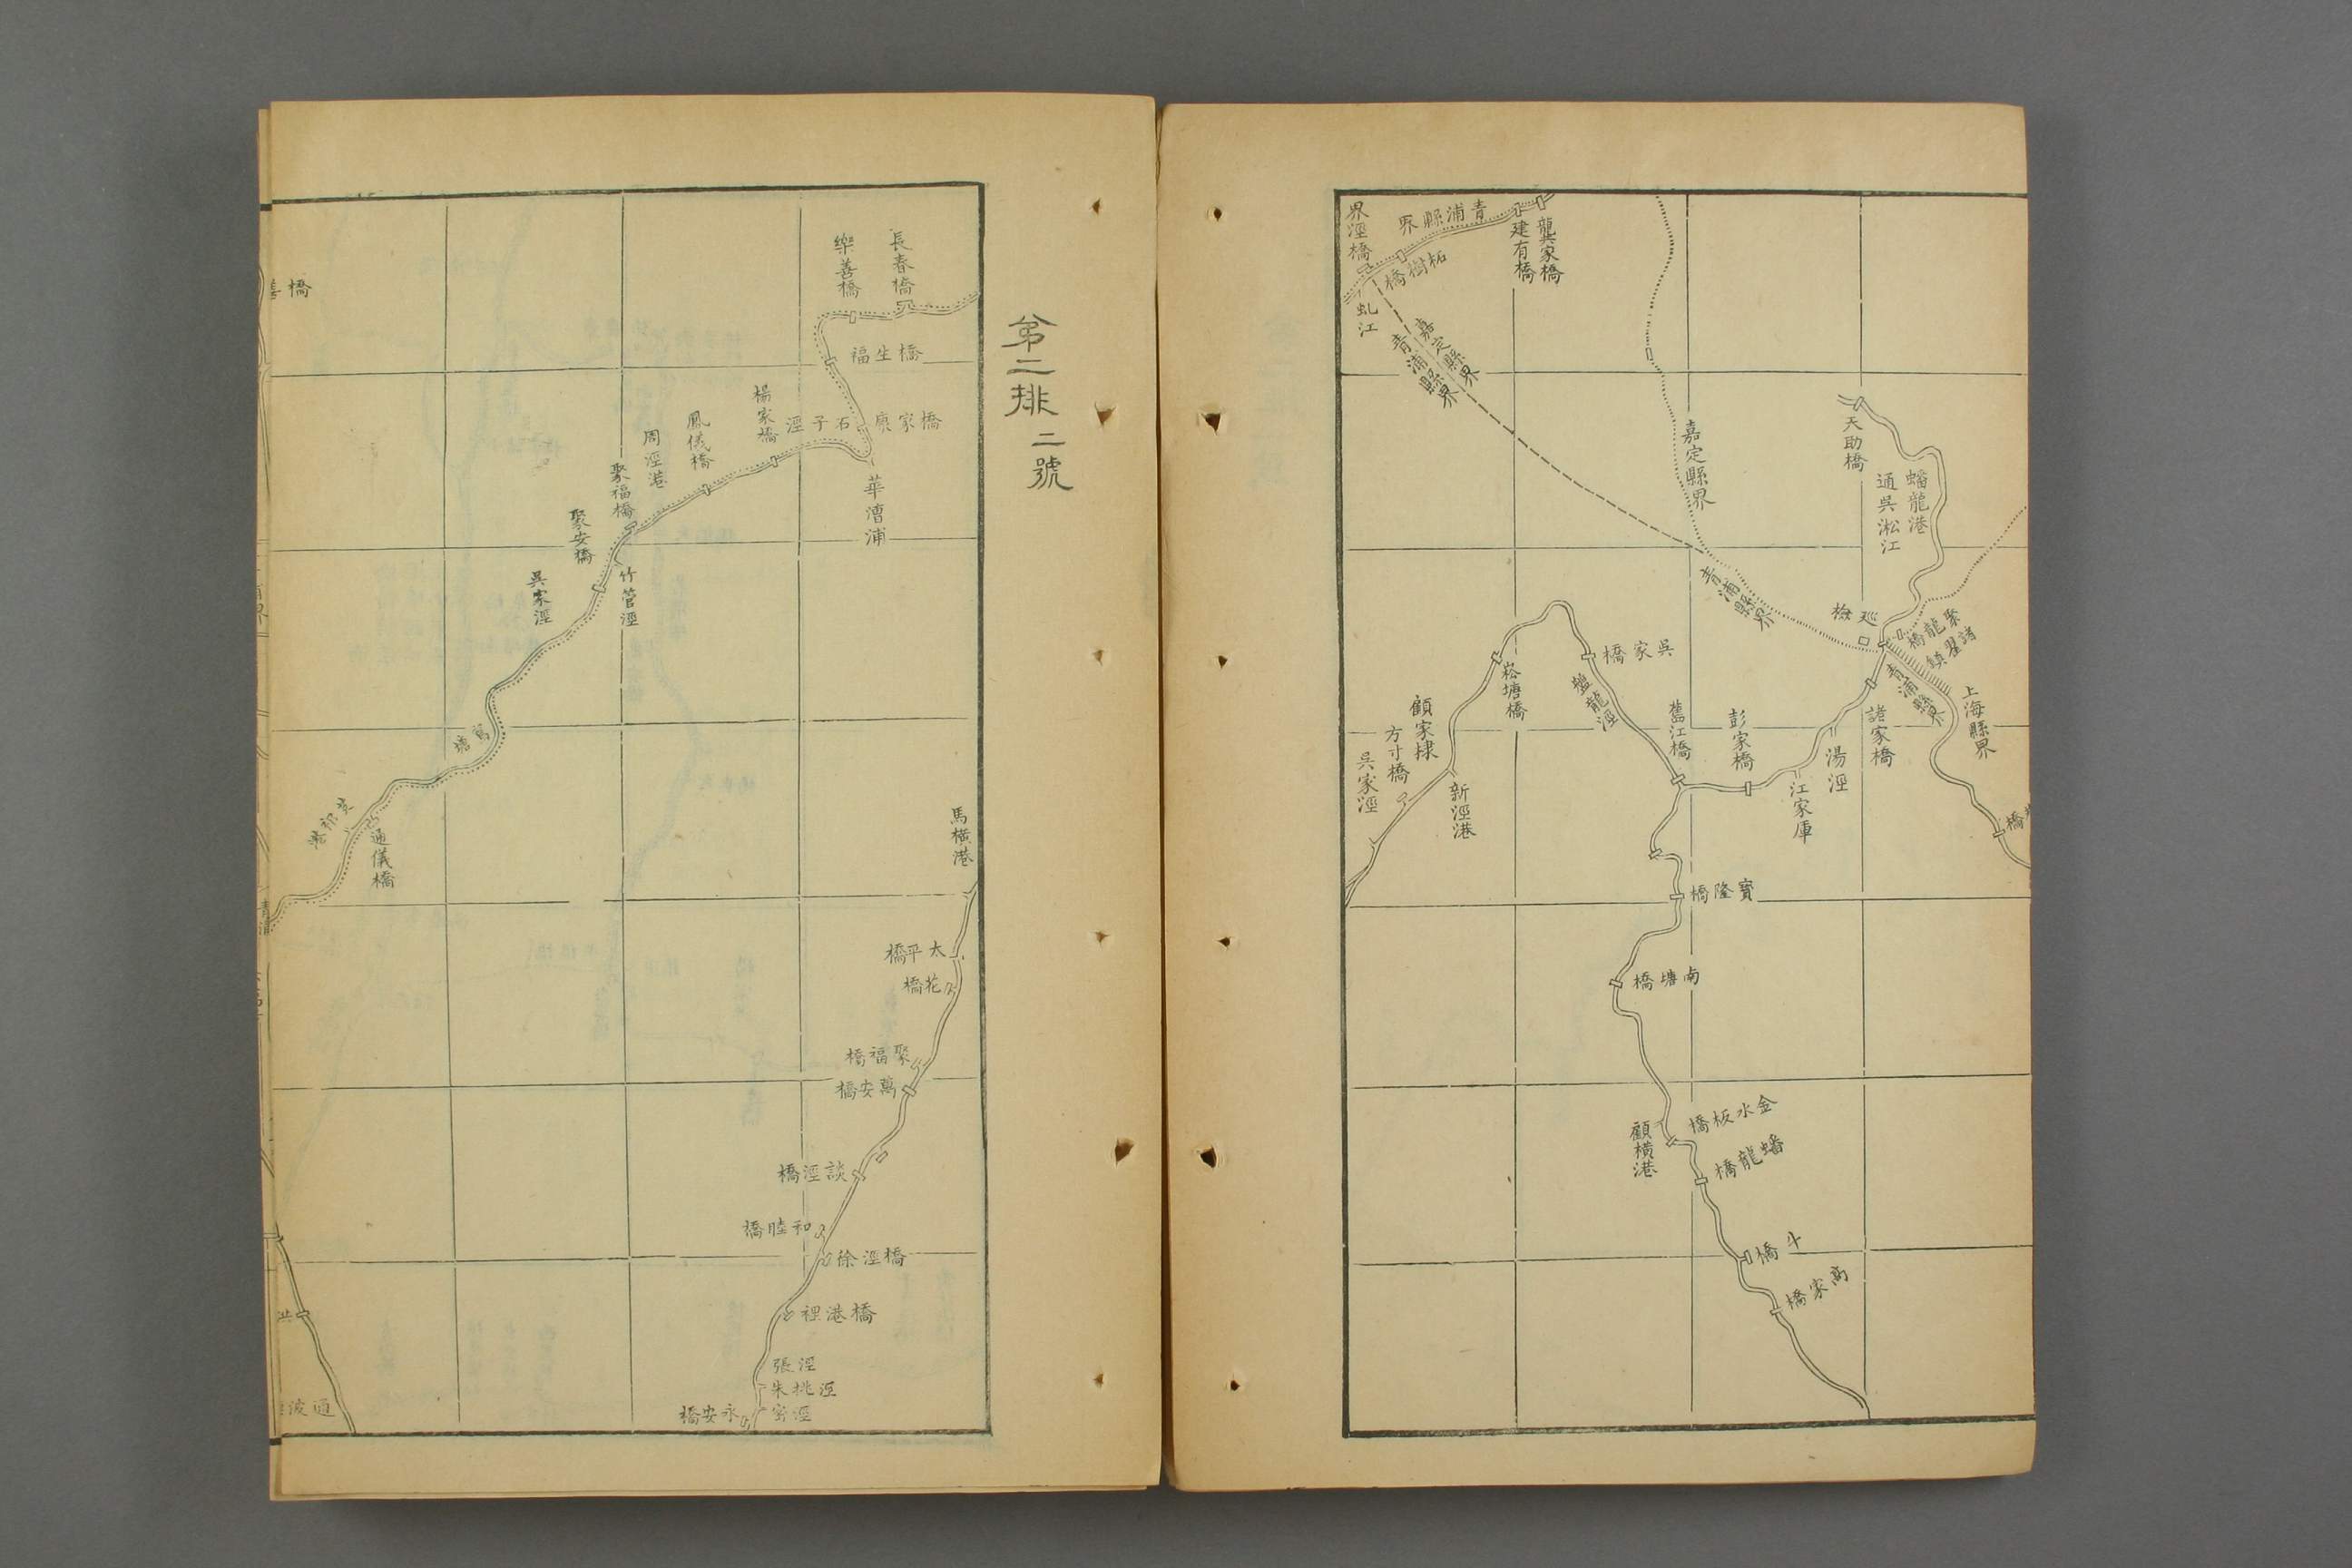 界涇橋
青浦縣界
柘樹橋
建有橋
龔家橋
虬江
嘉定縣界
青浦縣界
嘉定縣界
天助橋
蟠龍港
通吳淞江
青浦縣界
巡檢
聚龍橋
諸翟鎮
青浦縣界
上海縣界
諸家橋
湯涇
江家厙
彭家橋
舊江橋
吳家橋
盤龍涇
崧塘橋
顧家棣
方寸橋
吳家涇
新涇港
寶隆橋
南塘橋
金水板橋
顧橫港
蟠龍橋
斗橋
高家橋
第二排二號
長春橋
樂善橋
福生橋
石子涇
橋家
楊家橋
鳳儀橋
周涇港
聚福橋
聚安橋
華漕浦
竹管涇
吳家涇
通儀橋
馬橫港
太平橋
花橋
聚福橋
萬安橋
談涇橋
和睦橋
徐涇橋
裡港橋
張涇
朱桃涇
永安橋
通波